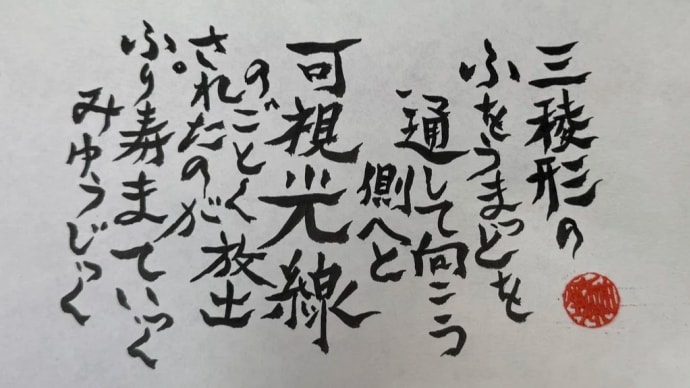 三稜形の
ふをうまっどを
通して向こう
側へと
可視光線
のごとく放出
されたのが
ぷり寿まてぃっく
みゅうじっく